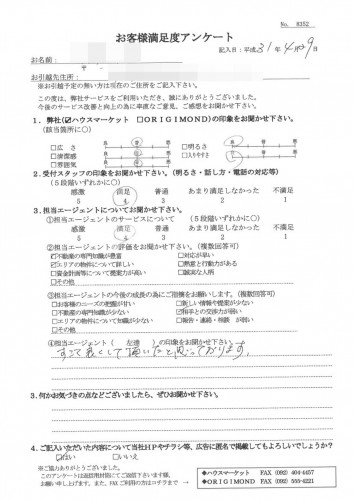 No. 8352
お客様満足度アンケート
記入日：平成 31年 4月29日
お名前：
〒
お引越先住所：
※お引越予定の無い方は現在のご住所をご記入下さい。
この度は、弊社サービスをご利用いただき、誠にありがとうございました。
今後のサービス改善と向上の為に率直なご意見、ご感想をお聞かせ下さい。
1．弊社(☑ハウスマーケット □ＯＲＩＧＩＭＯＮＤ)の印象をお聞かせ下さい。
（該当箇所に○）
□広 さ 良 普 悪 □明るさ 良 普 悪
□清潔感 □入りやすさ
□雰囲気
2．受付スタッフの印象をお聞かせ下さい。（明るさ・話し方・電話の対応等）
（５段階いずれかに○）
感激 満足 普通 あまり満足しなかった 不満足
5 4 3 2 1
3．担当エージェントについてお聞かせ下さい。
①担当エージェントのサービスについて（５段階いずれかに○）
感激 満足 普通 あまり満足しなかった 不満足
5 4 3 2 1
②担当エージェントの評価をお聞かせ下さい。（複数回答可）
□不動産の専門知識が豊富 □対応が早い
☑エリアの物件について詳しい □熱意と行動力がある
□資金計画等について提案力が高い □誠実な人柄
□その他
③担当エージェントの今後の成長の為にご指摘をお願いします。（複数回答可）
□お客様のニーズの把握が甘い □新しい情報や提案が少ない
□不動産の専門知識が少ない ☑相手との交渉力が弱い
□エリアの物件について知識が少ない □報告・連絡・相談 が弱い
□その他
④担当エージェント（ 左達 ）の印象をお聞かせ下さい。
すごく良くして頂いたと思っております。
3．何かお気づきの点などございましたら、ぜひお聞かせ下さい。
4．ご記入いただいた内容について当社ＨＰやチラシ等、広告に匿名で掲載してもよろしいでしょうか？
□はい □いいえ
※ご協力ありがとうございました。
このアンケートは返信用封筒にてご返信下さいます様、
お願い申し上げます。また、ＦＡＸご利用の方はコチラまで →
◆ハウスマーケット FAX (092) 404-4457
◆ＯＲＩＧＩＭＯＮＤ FAX (092) 555-4221